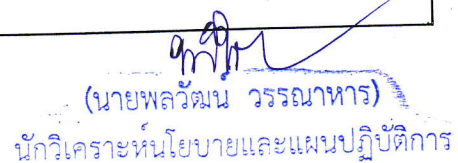 (นายพลวัฒน์ วรรณาหาร)
นักวิเคราะห์นโยบายและแผนปฏิบัติการ